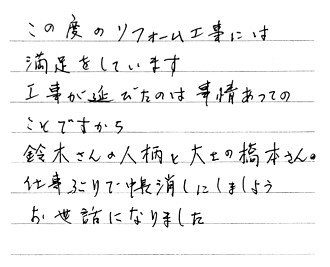 この度のリフォーム工事には
満足をしています
工事が延びたのは事情あっての
ことですから
鈴木さんの人柄と大工の橋本さん。
仕事ぶりで帳消しにしましよう
お世話になりました